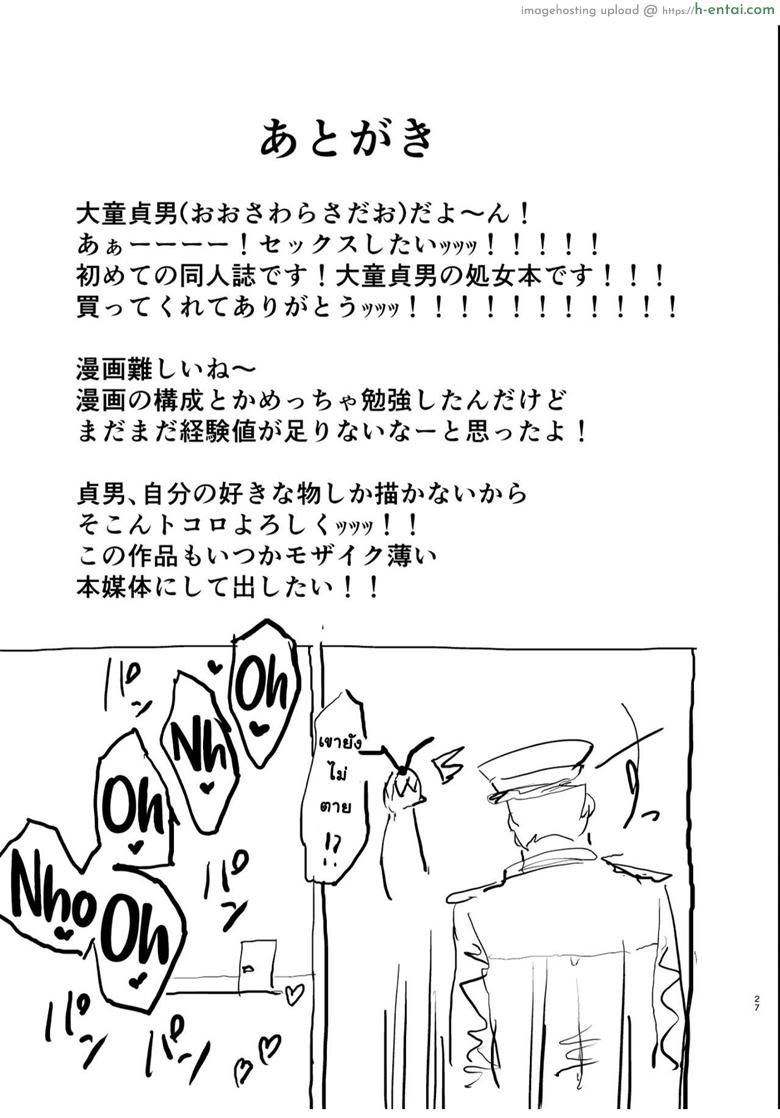 imagehosting upload @ https://h-entai.com
あとがき
大童貞男(おおさわらさだお)だよ〜ん！
あぁーーーー！セックスしたいｯｯｯ！！！！！
初めての同人誌です！大童貞男の処女本です！！！
買ってくれてありがとうｯｯｯ！！！！！！！！！！！
漫画難しいね〜
漫画の構成とかめっちゃ勉強したんだけど
まだまだ経験値が足りないなーと思ったよ！
貞男、自分の好きな物しか描かないから
そこんトコロよろしくｯｯｯ！！
この作品もいつかモザイク薄い
本媒体にして出したい！！
Oh
Nh
Oh
Nho
Oh
パン
パン
パン
パン
เขายัง
ไม่
ตาย
!?
27